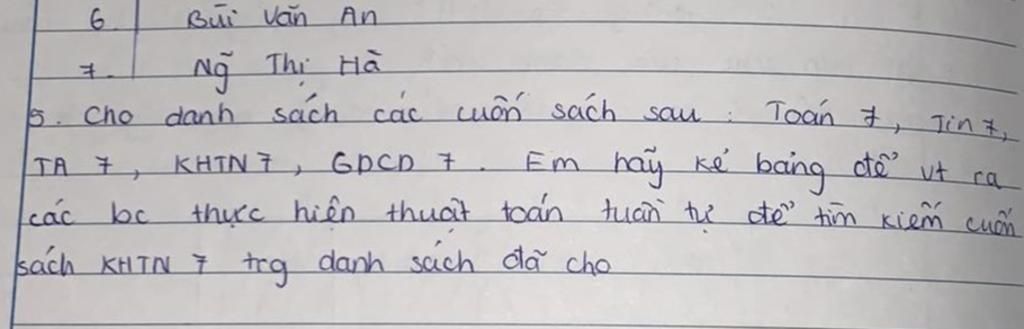 6. Bùi Văn An
7. Ng̃ Thị Hà
5. Cho danh sách các cuốn sách sau: Toán 7, Tin 7,
TA 7, KHTN 7, GDCD 7. Em hãy kẻ bảng để vt ra
các bc thực hiện thuật toán tuần tự để tìm kiếm cuốn
sách KHTN 7 trg danh sách đã cho